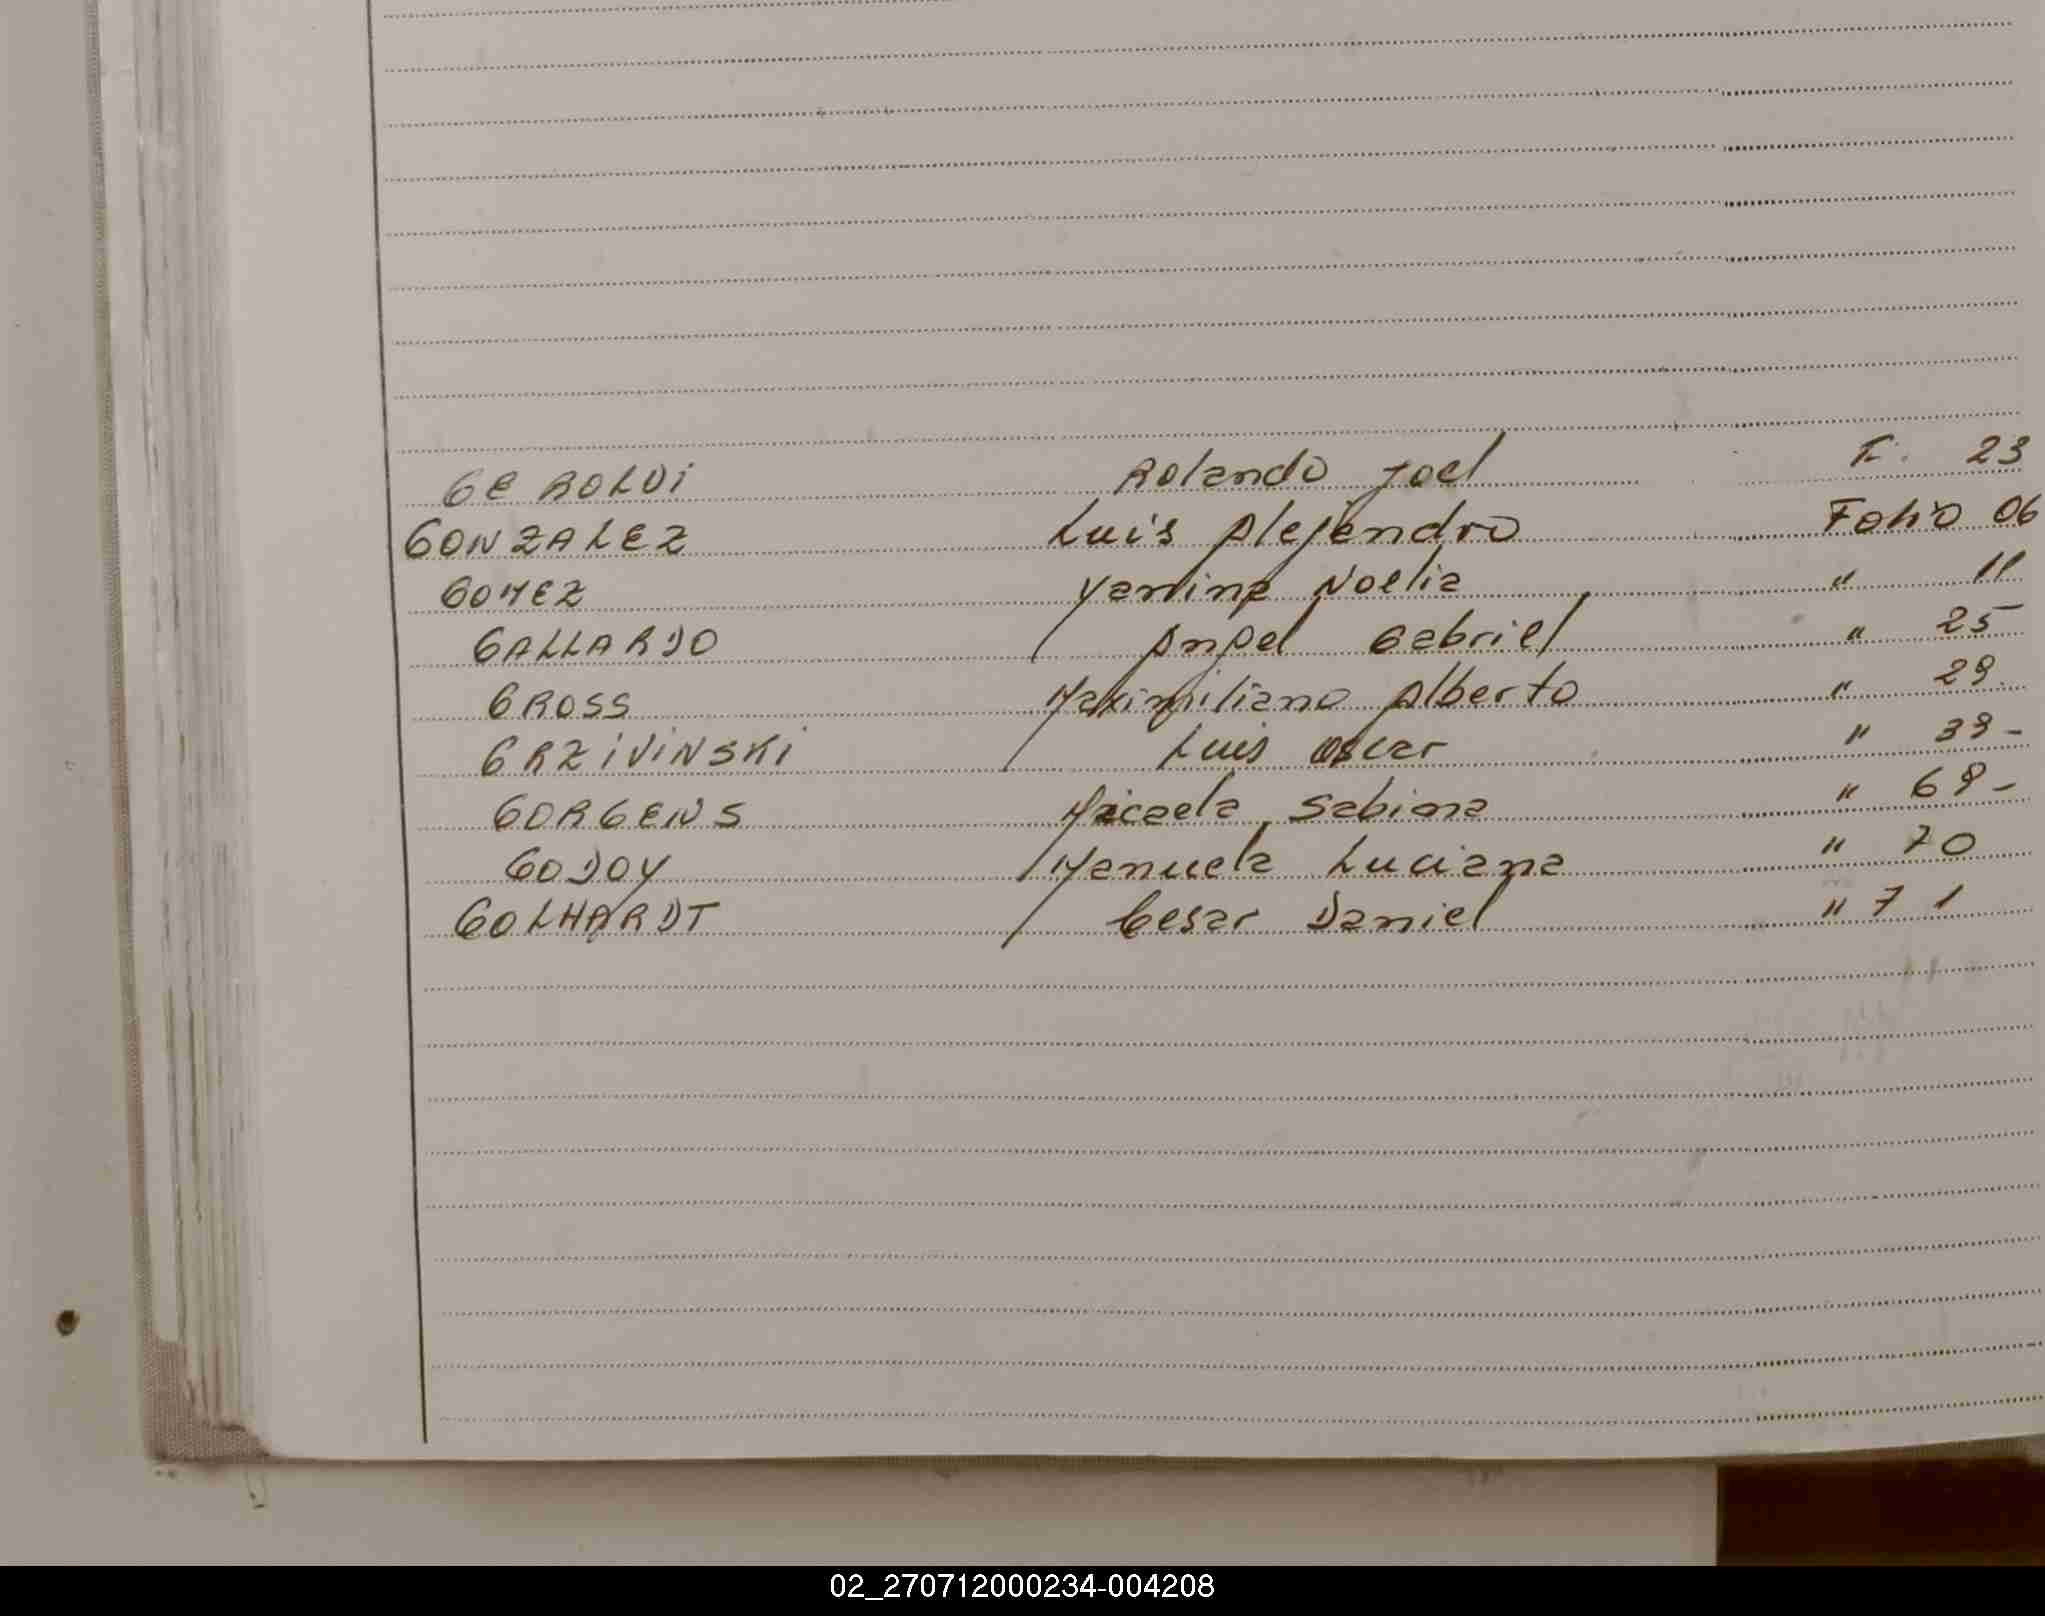 GEROLDI Rolando Joel F. 23
GONZALEZ Luis Alejandro Folio 06
GOMEZ Yanina Noelia " 11
GALLARDO Angel Gabriel " 25
GROSS Maximiliano Alberto " 29.
GRZIVINSKI Luis Oscar " 39-
GORGENS Micaela Sabina " 69-
GODOY Manuela Luciana " 70
GOLHARDT Cesar Daniel " 71
02_270712000234-004208